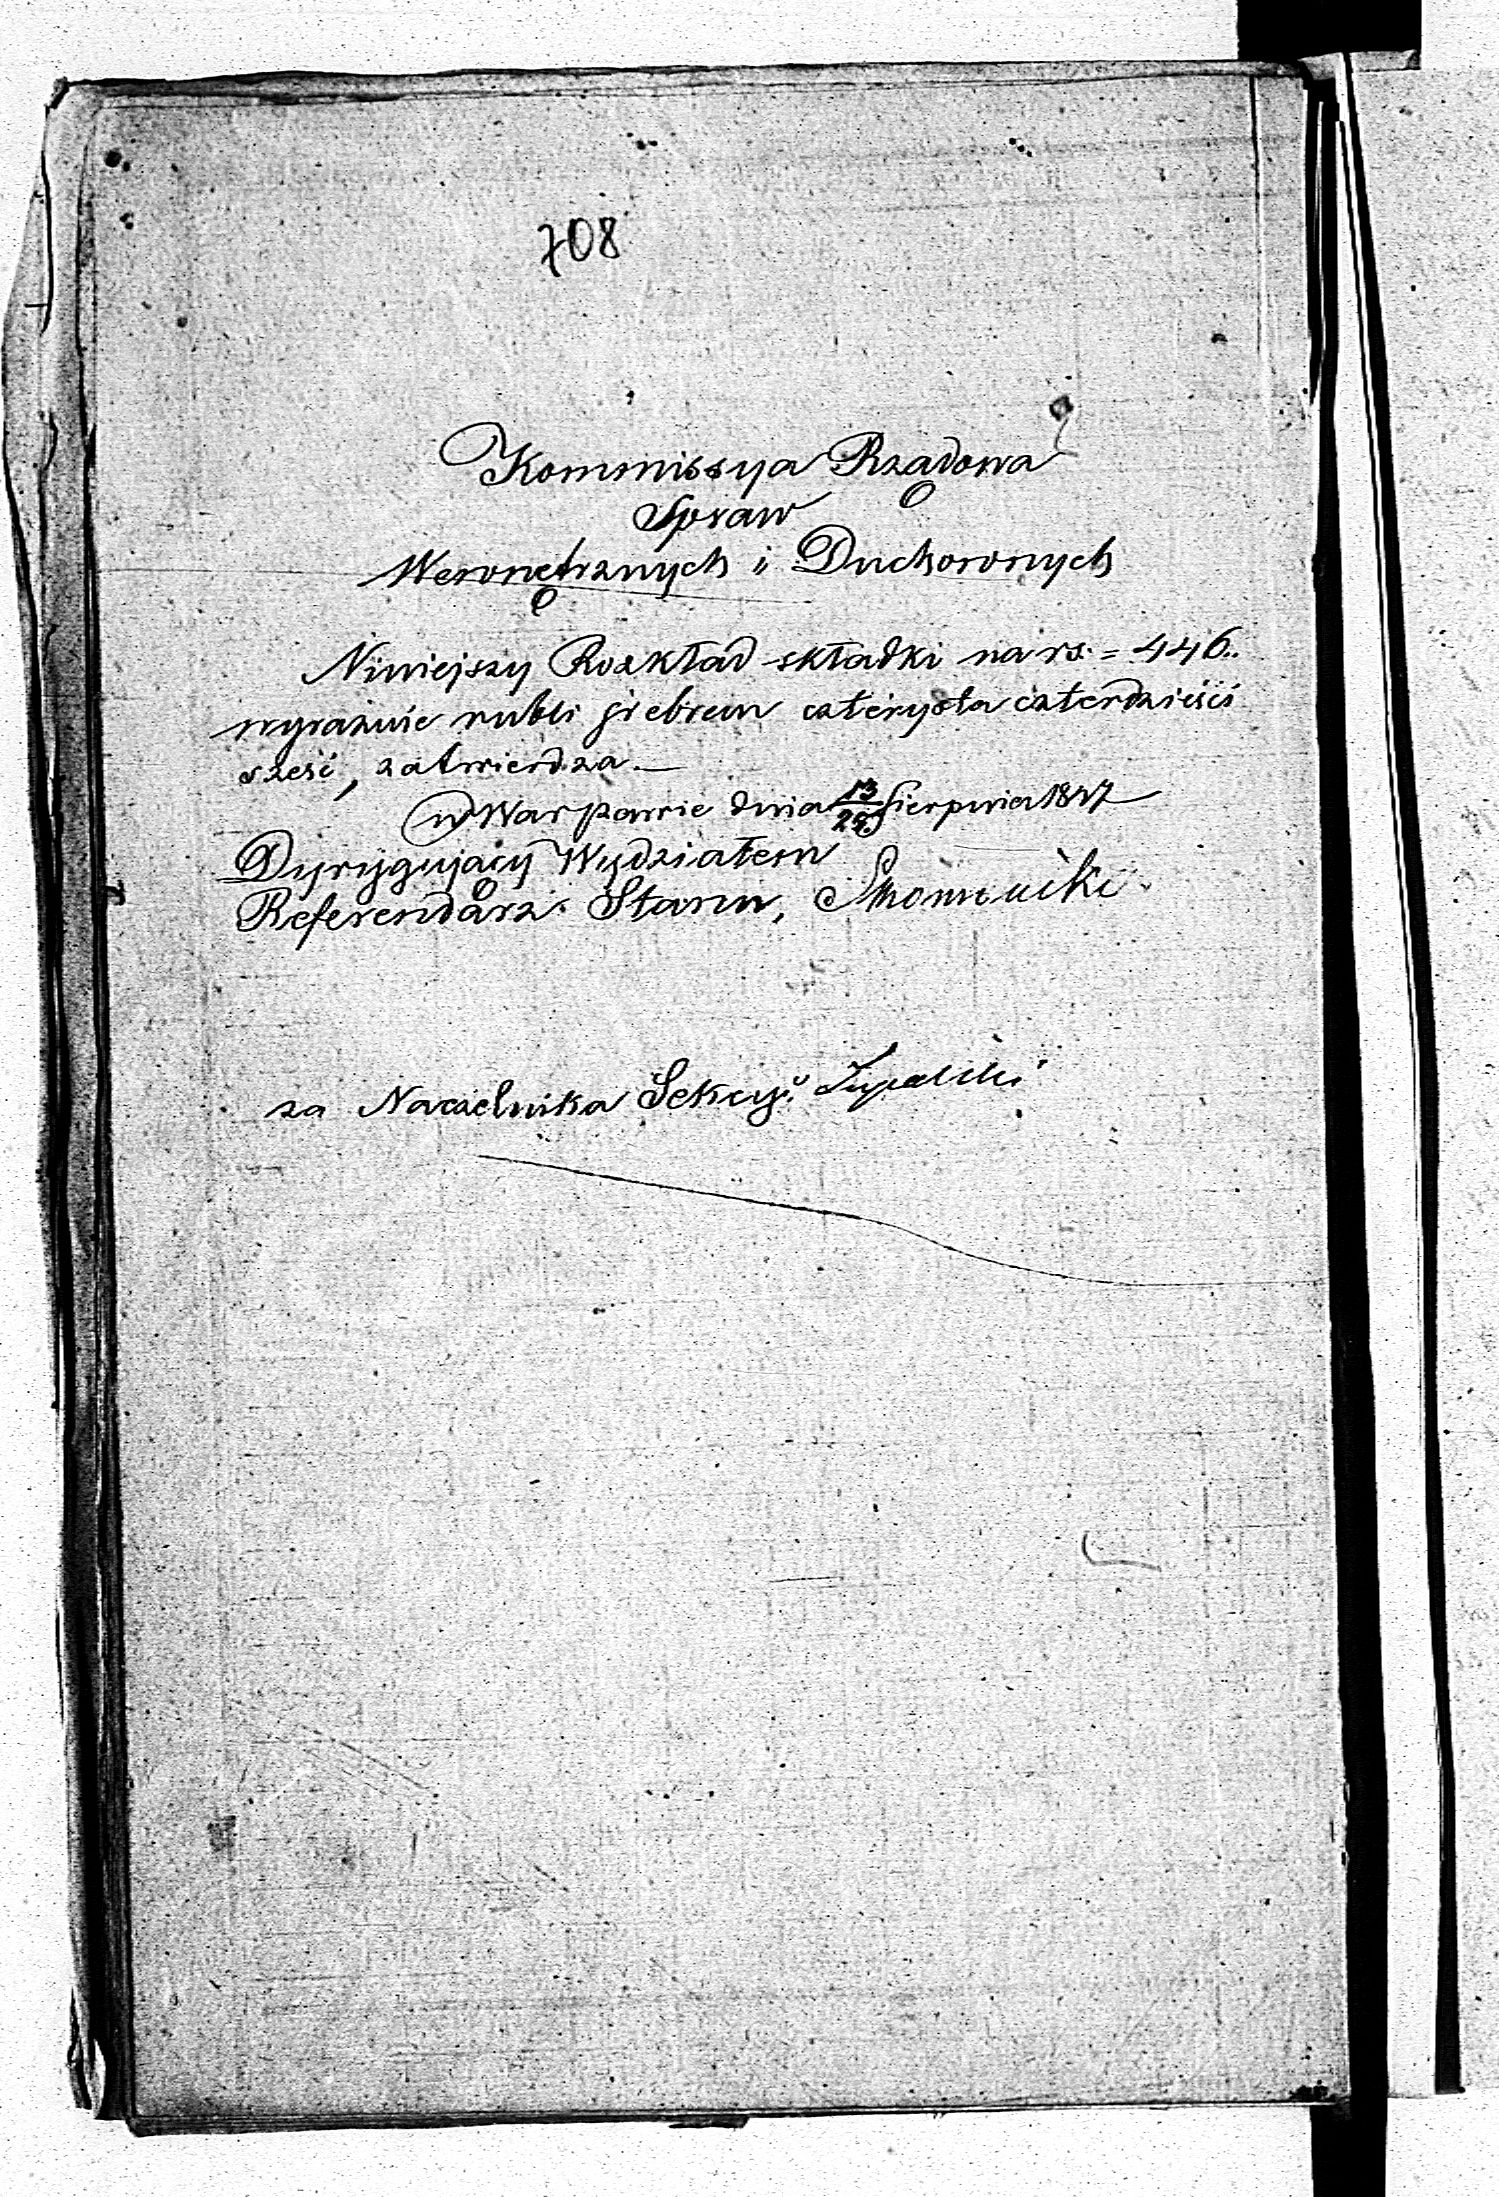 708
Kommissya Rządowa
Spraw
Wewnętrznych i Duchownych
Niniejszy Rozkład składki na rs. = 446.
wyraźnie rubli srebrem czterysta czterdzieści
sześć, zatwierdza. —
w Warszawie dnia 13/25 Sierpnia 1847
Dyrygujący Wydziałem
Referendarz Stanu,
za Naczelnika Sekcyi